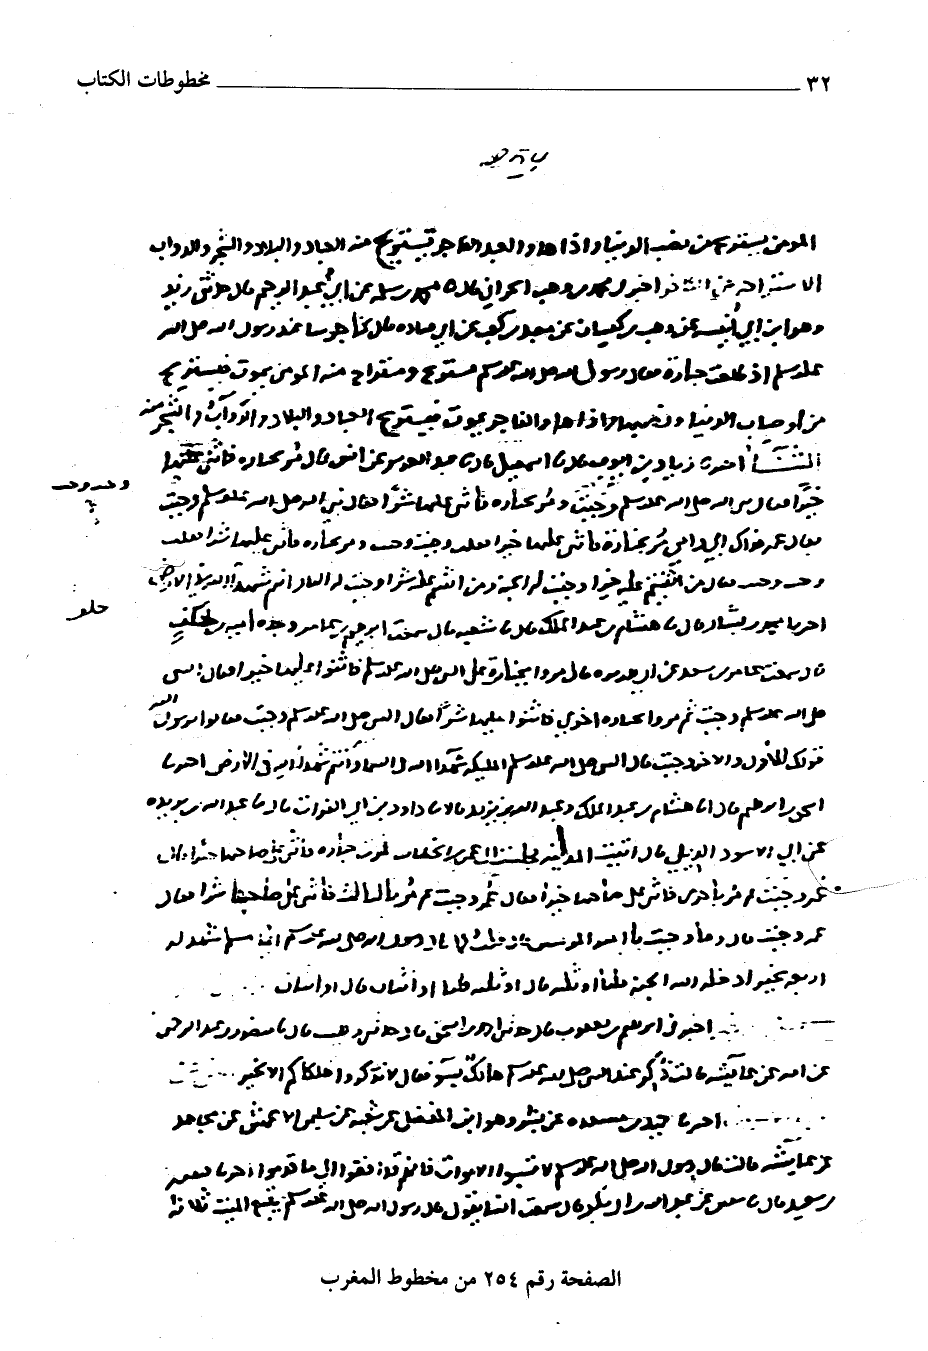 ٣٢ مخطوطات الكتاب
المومن يستريح من نصب الدنيا واذاها والعبد الفاجر يستريح منه العباد والبلاد والشجر والدواب
الاستراحة من اخبرنا محمد بن وهب الحراني قال محمد بن سلمة عن ابي عبد الرحيم قال حدثني زيد
وهو ابن ابي أنيسة عن وهب بن كيسان عن معبد بن كعب عن ابي قتادة قال كنا جلوسا عند رسول الله صلى الله
عليه وسلم اذ طلعت جنازة فقال رسول الله صلى الله عليه وسلم مستريح ومستراح منه المومن يموت فيستريح
من أوصاب الدنيا ونصبها واذاها والفاجر يموت فيستريح منه العباد والبلاد والدواب والشجر
الثنا اخبرنا زياد بن ايوب قال نا اسمعيل قال نا عبد العزيز عن انس قال مر بجنازة فاثني عليها
خيرا فقال نبي الله صلى الله عليه وسلم وجبت ومر بجنازة فأثني عليها شرا فقال نبي الله صلى الله عليه وسلم وجبت
فقال عمر فداك ابي وامي مر بجنازة فاثني عليها خيرا فقلت وجبت وجبت ومر بجنازة فاثني عليها شرا فقلت
وجبت وجبت فقال من اثنيتم عليه خيرا وجبت له الجنة ومن اثنيتم عليه شرا وجبت له النار انتم شهدا الله في الارض
اخبرنا محمد بن بشار قال نا هشام بن عبد الملك قال نا شعبة قال سمعت ابرهيم بن عامر وجده أمية بن خلف
قال سمعت عامر بن سعد عن ابي هريرة قال مروا بجنازة على النبي صلى الله عليه وسلم فاثنوا عليها خيرا فقال النبي
صلى الله عليه وسلم وجبت ثم مروا بجنازة اخرى فاثنوا عليها شرا فقال النبي صلى الله عليه وسلم وجبت فقالوا يرسول الله
قولك للأول والاخر وجبت قال النبي صلى الله عليه وسلم المليكة شهدا الله في السما وأنتم شهدا الله في الأرض اخبرنا
اسحق بن ابرهيم قال انا هشام بن عبد الملك وعبد الله بن يزيد قالا نا داود بن ابي الفرات قال نا عبد الله بن بريدة
عن ابي الاسود الديلي قال اتيت المدينة فجلست الى عمر بن الخطاب فمرت جنازة فأثني على صاحبها خيرا فقال
عمر وجبت ثم مر بأخرى فاثني على صاحبها خيرا فقال عمر وجبت ثم مر بالثالث فأثني على صاحبها شرا فقال
عمر وجبت قال وما وجبت يأمير المومنين قال قلت كما قال رسول الله صلى الله عليه وسلم ايما مسلم شهد له
اربعة بخير ادخله الله الجنة قلنا أو ثلثة قال او ثلثة قلنا او اثنان قال او اثنان
اخبرني ابرهيم بن يعقوب قال حدثني احمد بن اسحق قال حدثني وهيب قال نا منصور بن عبد الرحمن
عن امه عن عايشة قالت ذكر عند النبي صلى الله عليه وسلم هالك بسوء فقال لا تذكروا هلكاكم الا بخير
اخبرنا حميد بن مسعدة عن بشر وهو ابن المفضل عن شعبة عن سليمن الاعمش عن مجاهد
عن عايشة قالت قال رسول الله صلى الله عليه وسلم لا تسبوا الاموات فانهم قد افضوا الى ما قدموا اخبرنا قتيبة
بن سعيد قال نا سفين عن عبد الله بن ابي بكر قال سمعت انسا يقول قال رسول الله صلى الله عليه وسلم يتبع الميت ثلاثة
وجبت وجبت
خلف
الصفحة رقم ٢٥٤ من مخطوط المغرب